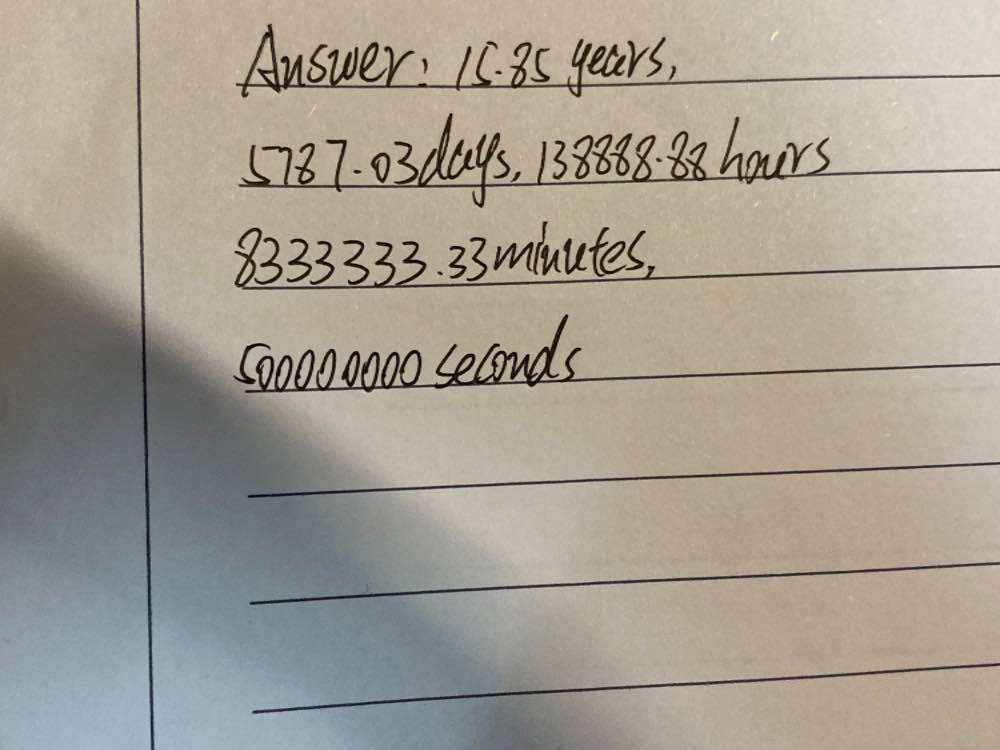 Answer: 15.85 years,
5787.03 days, 138888.88 hours
8333333.33 minutes,
500000000 seconds